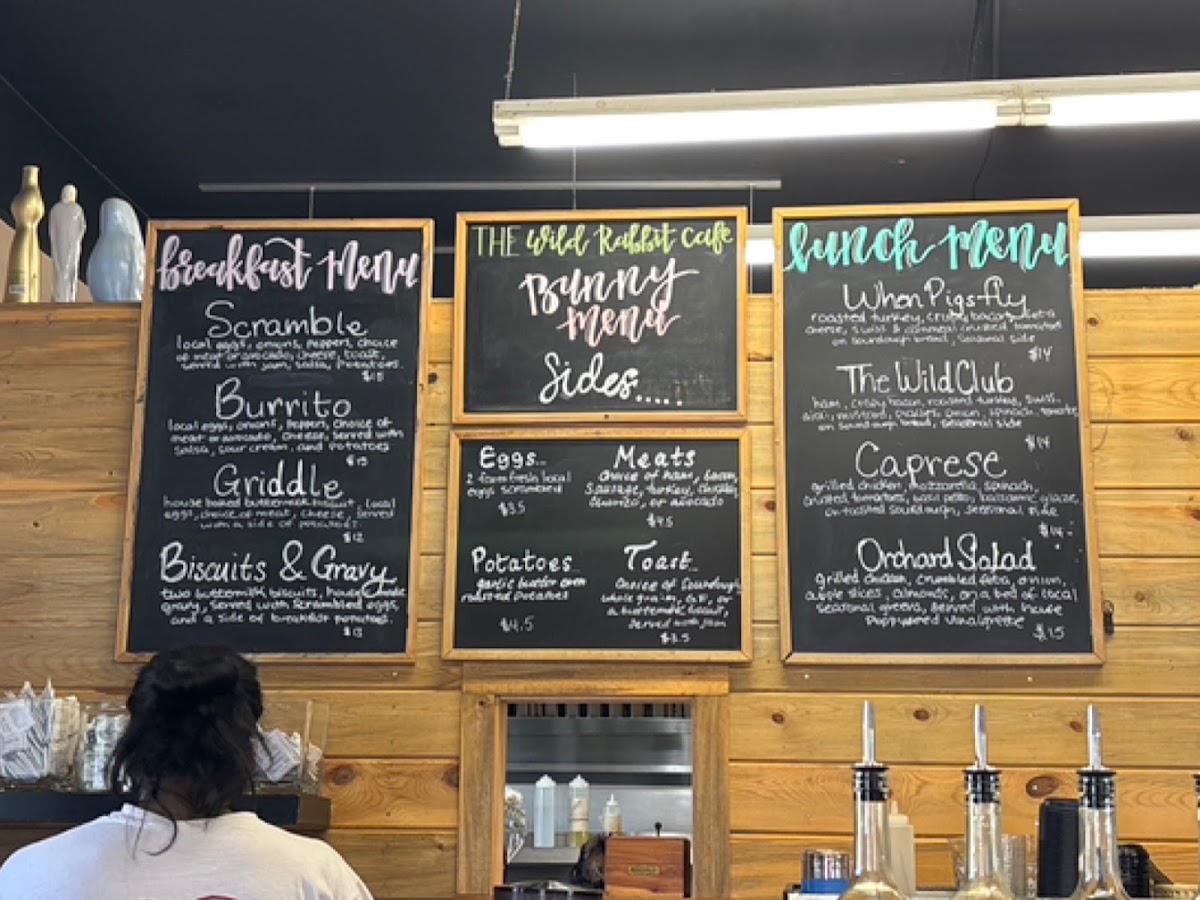 breakfast menu
Scramble
local eggs, onions, peppers, choice
of meat or avocado, cheese, toast,
served with jam, salsa, potatoes.
$15
Burrito
local eggs, onions, peppers, choice of
meat or avocado, cheese, served with
salsa, sour cream, and potatoes
$15
Griddle
house baked buttermilk biscuit, local
eggs, choice of meat, cheese, served
with a side of potatoes.
$12
Biscuits & Gravy
two buttermilk biscuits, house made
gravy, served with scrambled eggs,
and a side of breakfast potatoes.
$13
THE Wild Rabbit Cafe
Bunny
menu
Sides.....
Eggs...
2 farm fresh local
eggs scrambled
$3.5
Meats
choice of ham, bacon,
sausage, turkey, chicken,
chorizo, or avocado
$4.5
Potatoes...
garlic butter oven
roasted potatoes
$4.5
Toast...
choice of sourdough,
whole grain, G.F, or
a buttermilk biscuit,
served with jam
$3.5
lunch menu
When Pigs fly
roasted turkey, crispy bacon, feta
cheese, swiss & oatmeal crusted tomatoes
on sourdough bread, seasonal side
$14
The Wild Club
ham, crispy bacon, roasted turkey, swiss,
aioli, mustard, pickles, onion, spinach, tomato,
on sourdough bread, seasonal side
$14
Caprese
grilled chicken, mozzarella, spinach,
tomatoes, basil pesto, balsamic glaze,
on toasted sourdough, seasonal side
$14
Orchard Salad
grilled chicken, crumbled feta, onion,
apple slices, almonds, on a bed of local
seasonal greens, served with house
poppyseed vinaigrette
$15